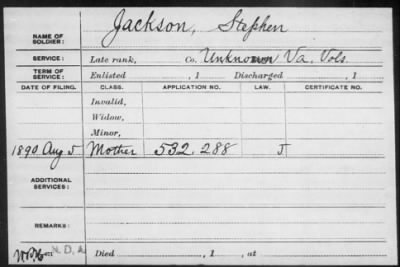 NAME OF SOLDIER: Jackson, Stephen
SERVICE: Late rank, Co. Unknown Va. Vols.
TERM OF SERVICE: Enlisted , 1 Discharged , 1
DATE OF FILING. CLASS. APPLICATION NO. LAW. CERTIFICATE NO.
Invalid,
Widow,
Minor,
1890 Aug 5 Mother 532.288 J
ADDITIONAL SERVICES:
REMARKS:
N.D.
Died , 1 , at